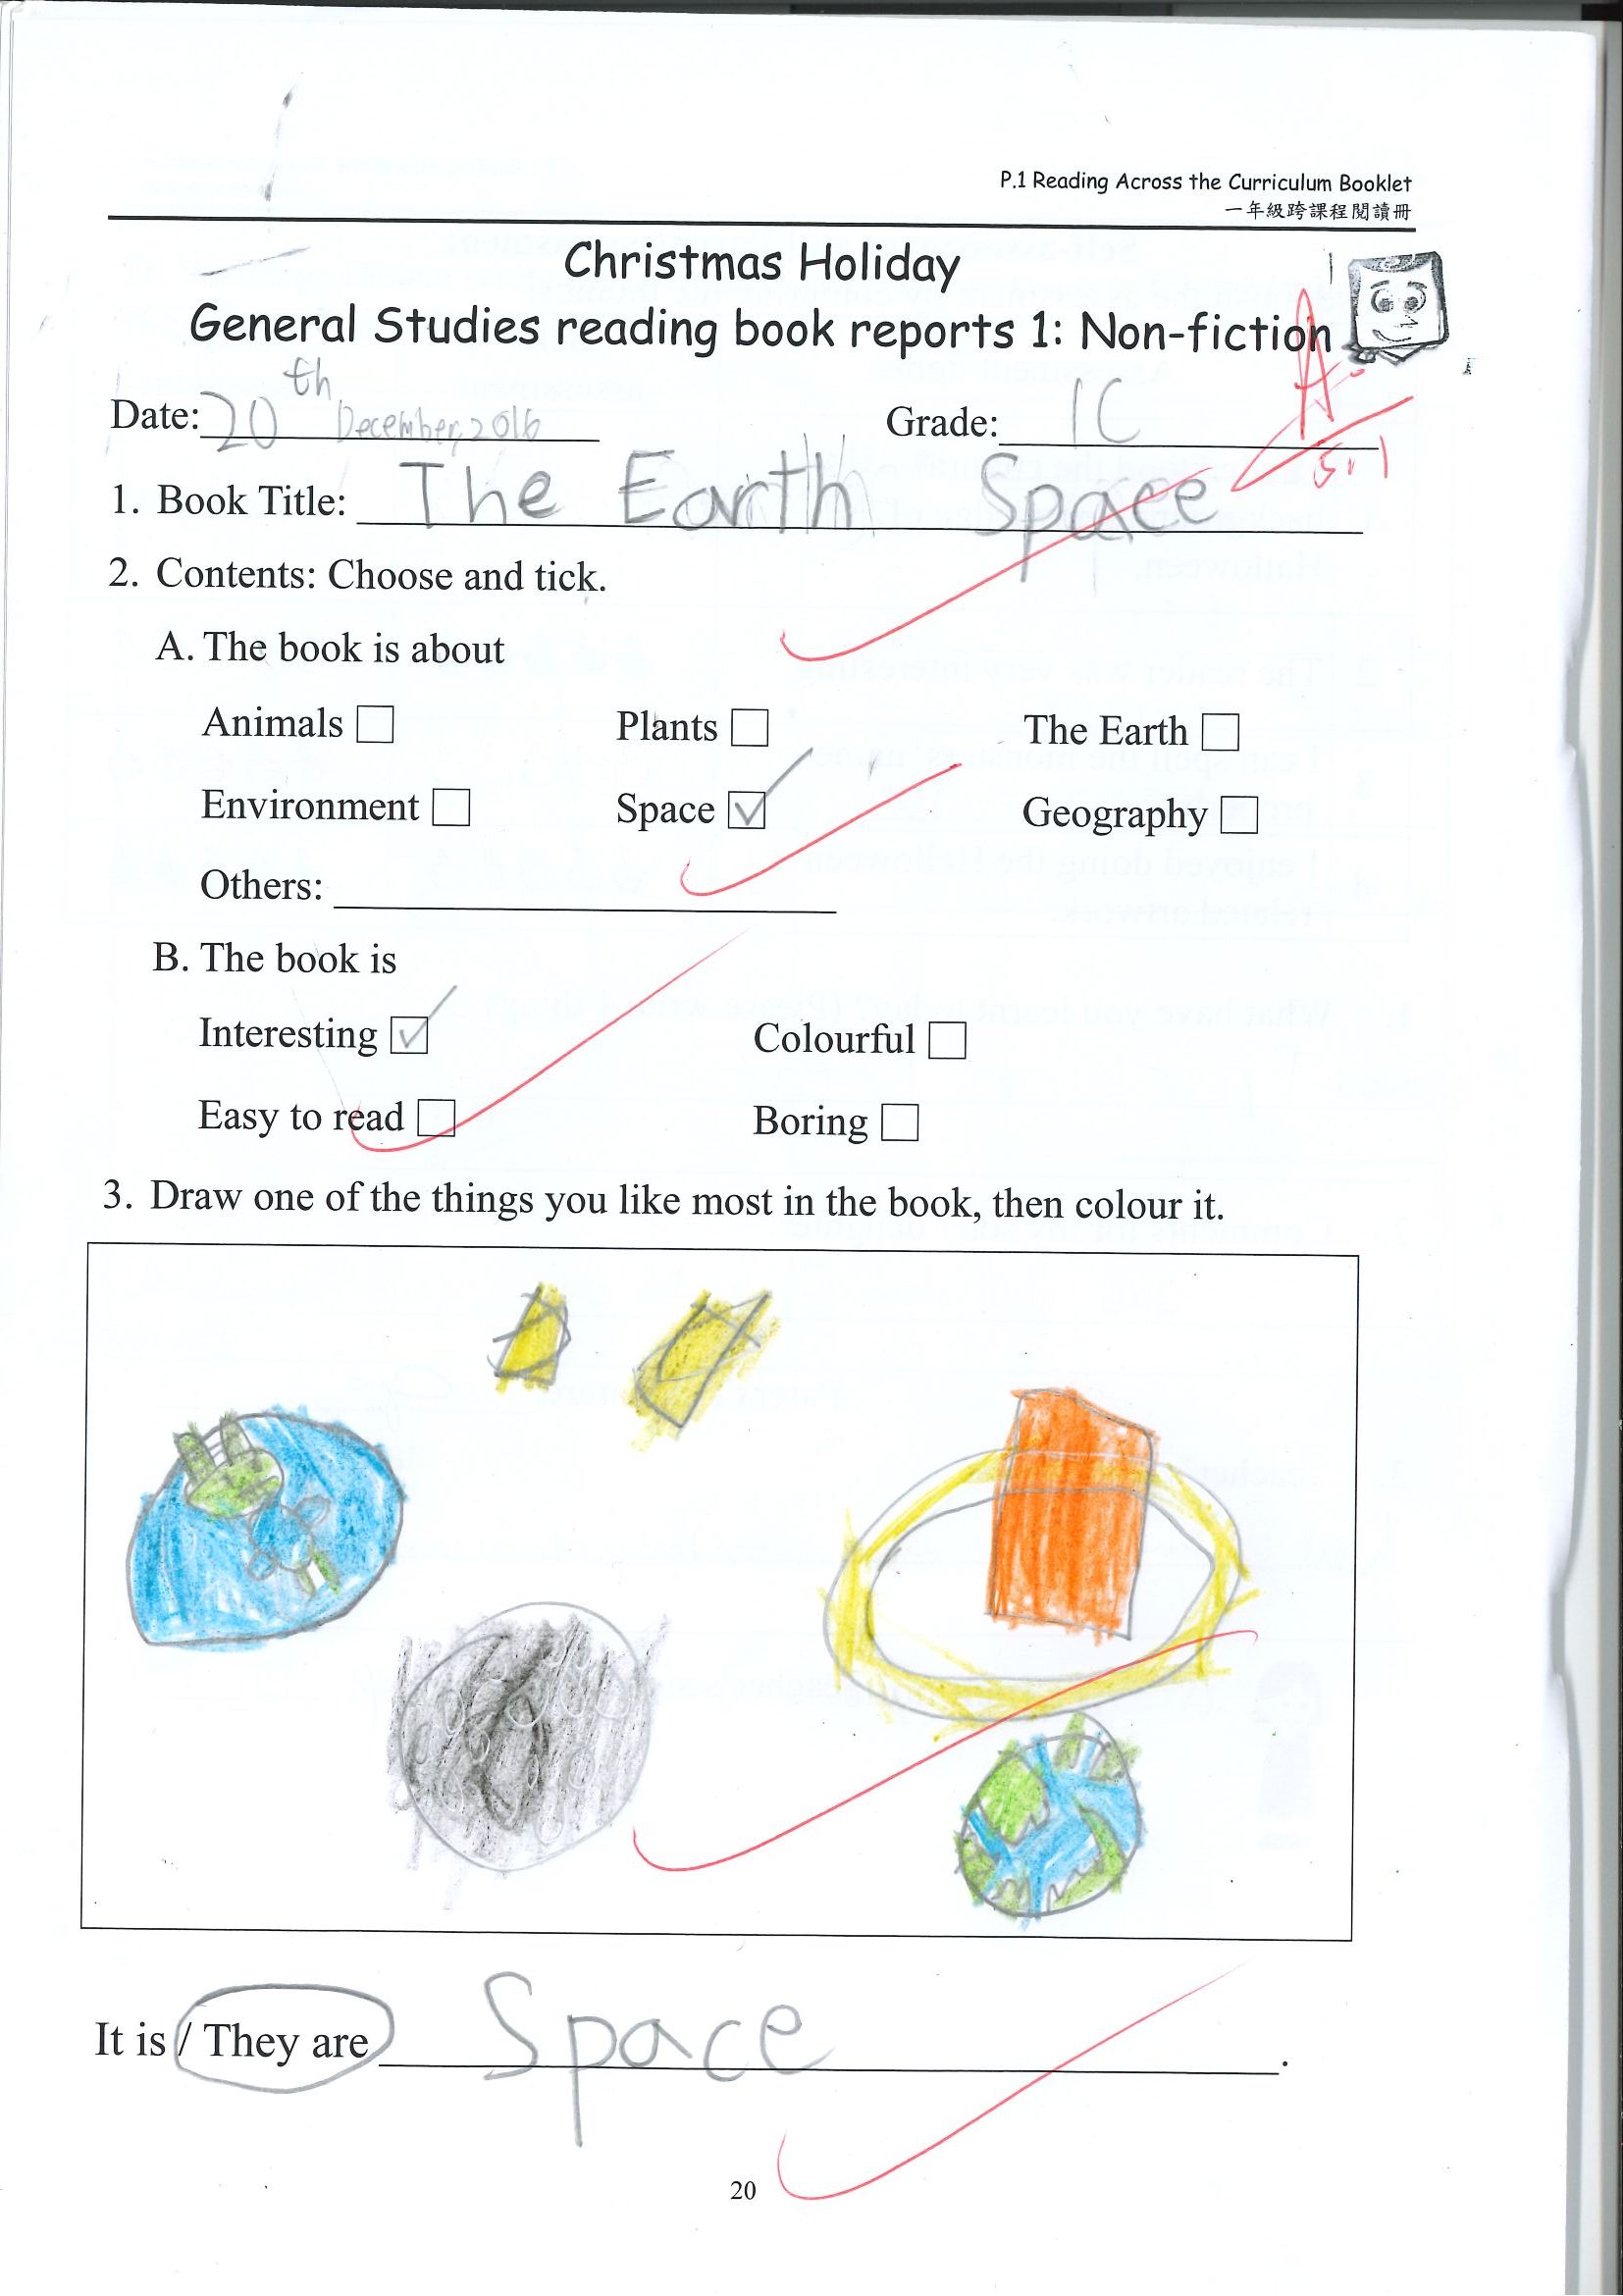 P.1 Reading Across the Curriculum Booklet
一年級跨課程閱讀冊
Christmas Holiday
General Studies reading book reports 1: Non-fiction
A-
Date: 20th December, 2016 Grade: 1C
5.1
1. Book Title: The Earth Space
2. Contents: Choose and tick.
A. The book is about
Animals Plants The Earth
Environment Space ✓ Geography
Others:
B. The book is
Interesting ✓ Colourful
Easy to read Boring
3. Draw one of the things you like most in the book, then colour it.
It is / They are Space .
20